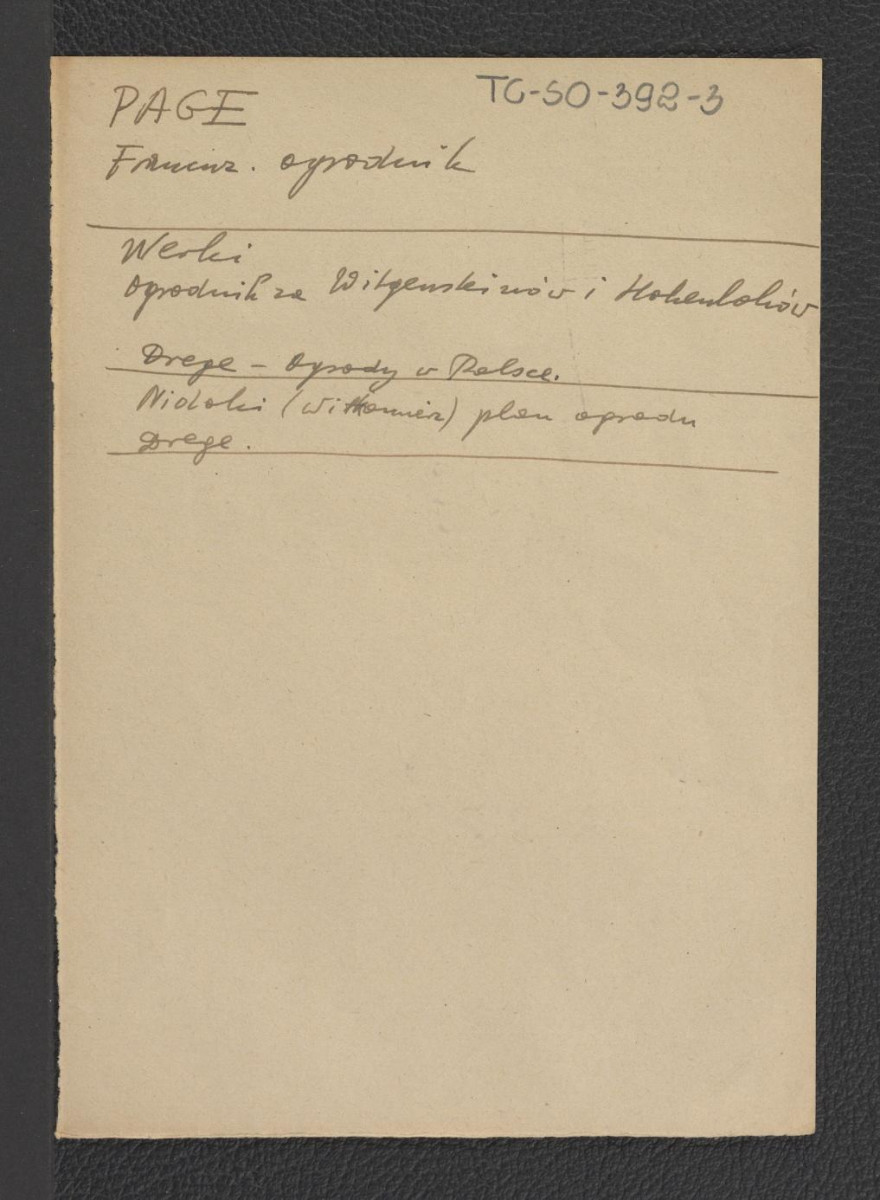 PAGE
TG-SO-392-3
Francuz. ogrodnik
Werki
ogrodnik za Witgensteinów i Hohenlohów
Drege - Ogrody w Polsce.
Nidoki (Wiłkomierz) plan ogrodu
Drege.